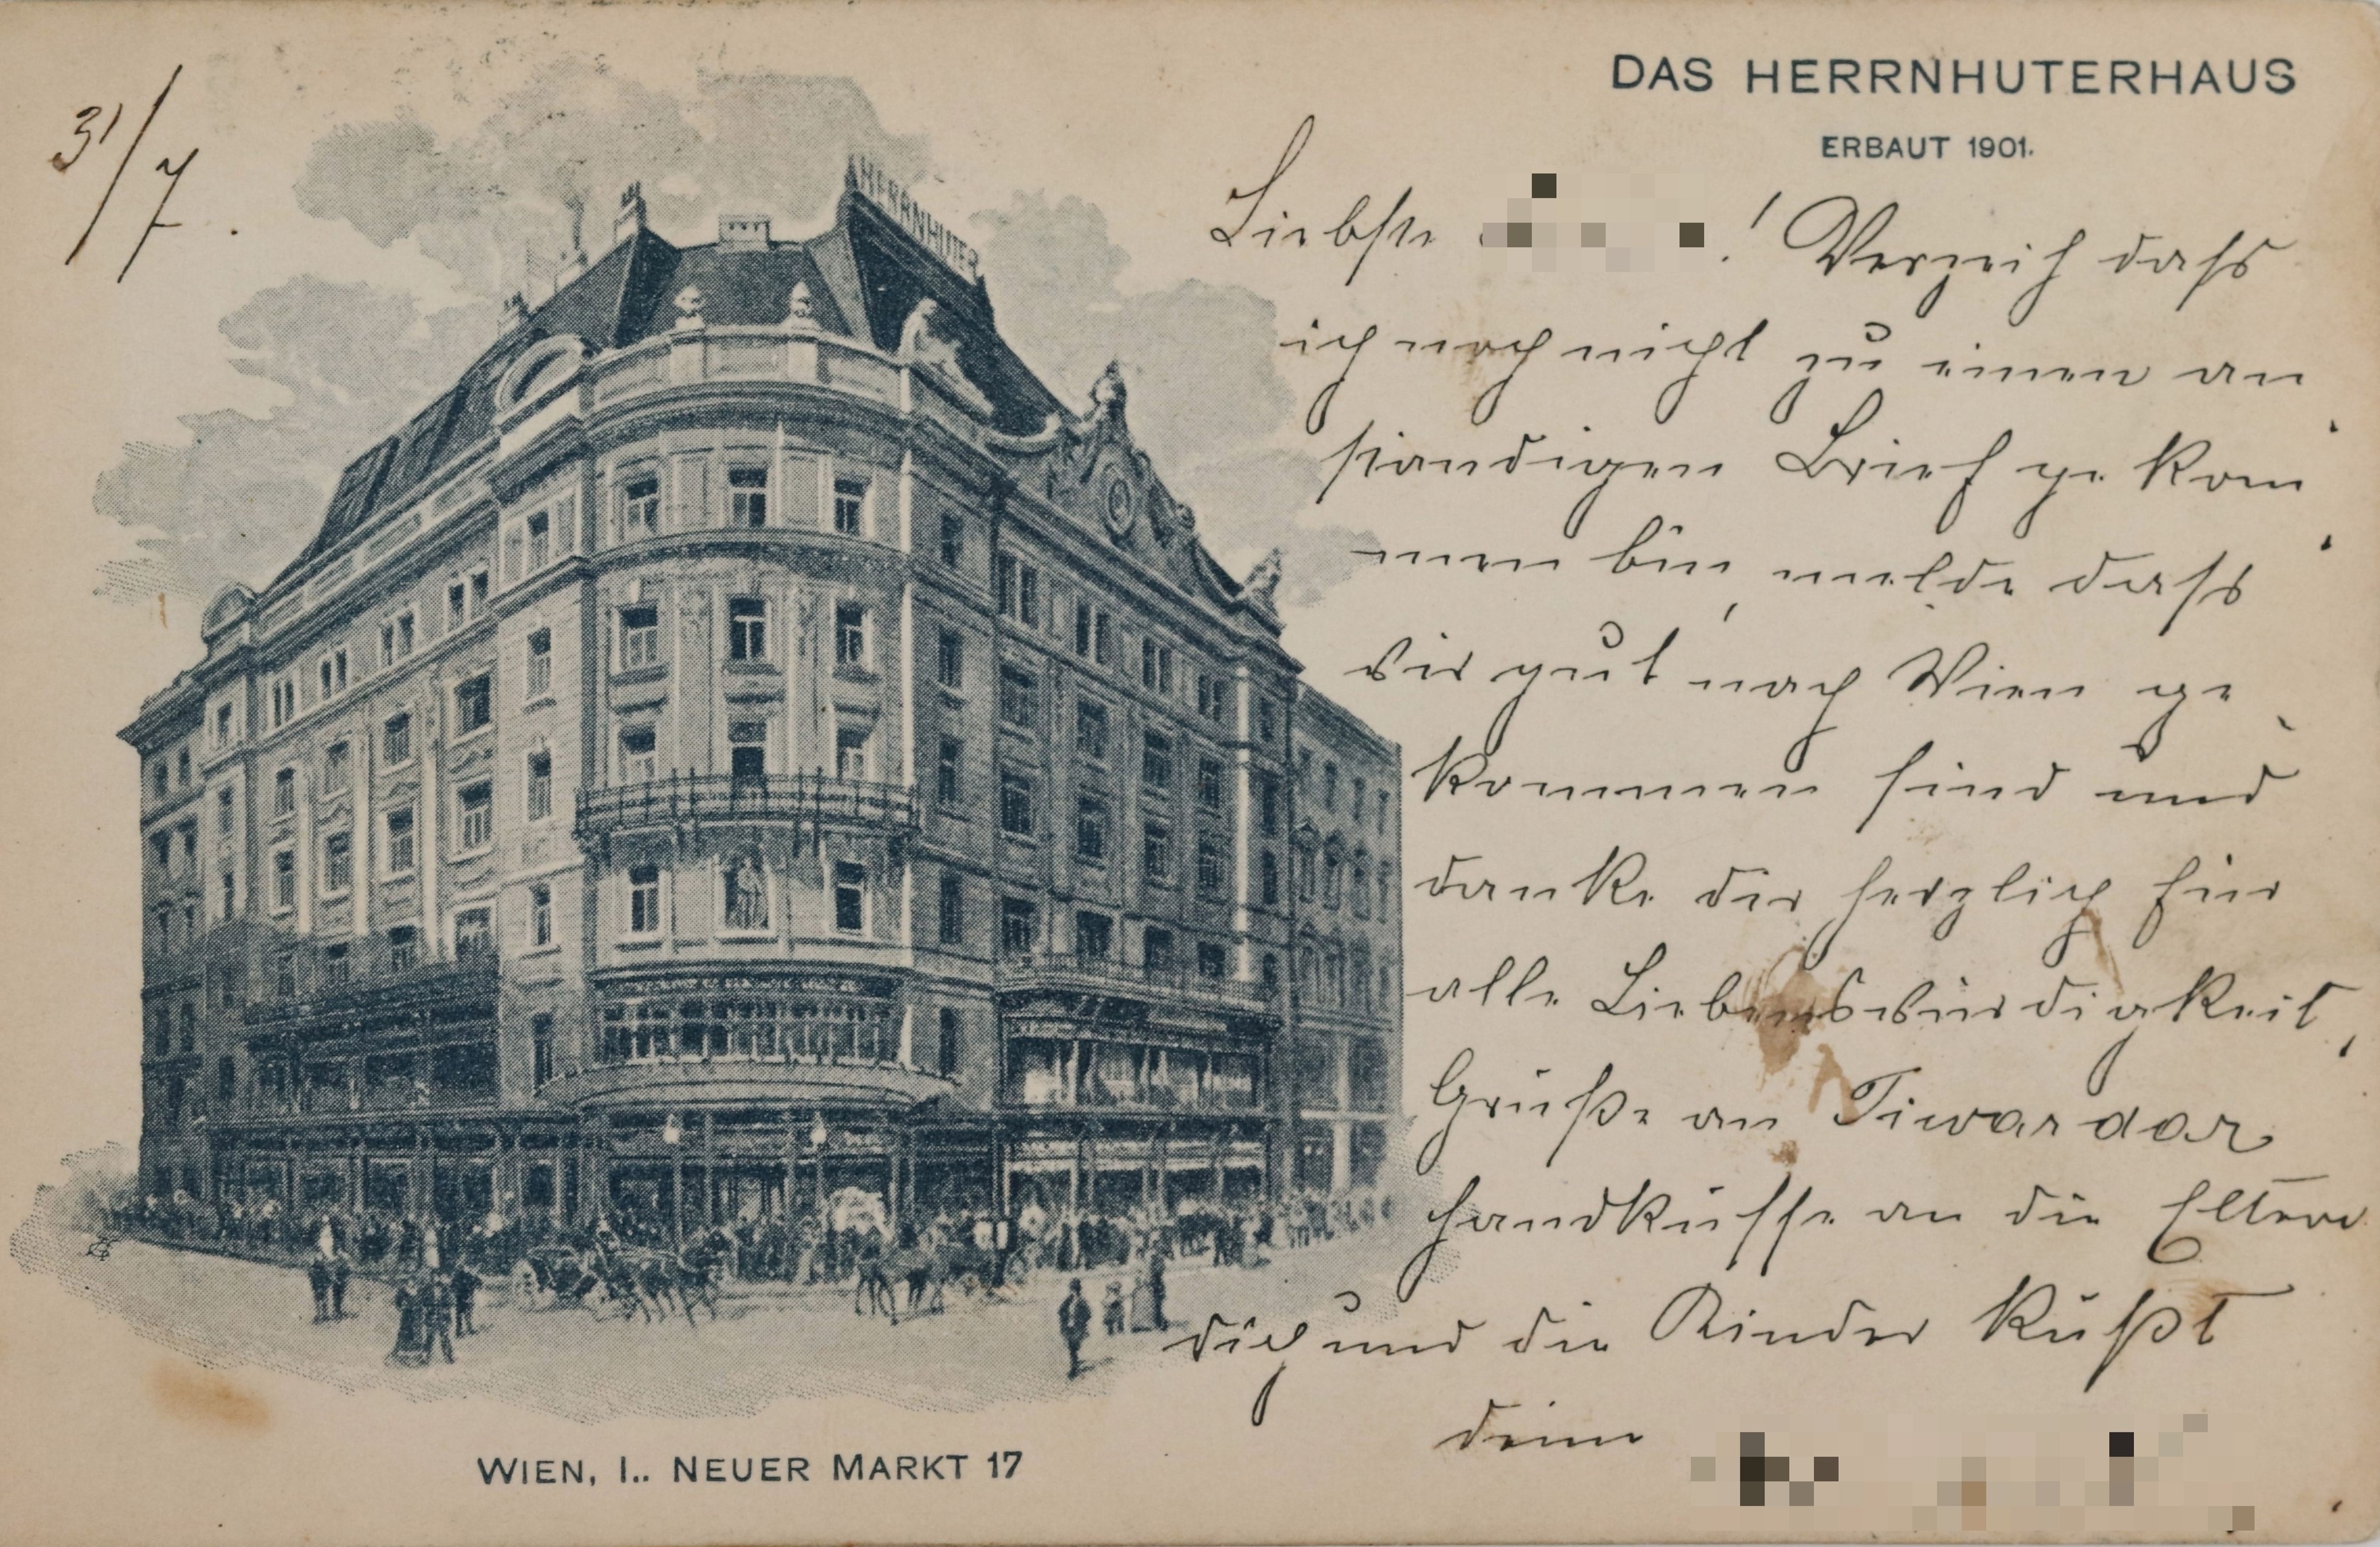 DAS HERRNHUTERHAUS
ERBAUT 1901.
31/7.
HERRNHUTER
Liebste ! Verzeih dass
ich noch nicht zu einen an
standigen Brief gekom
men bin, melde dass
wir gut nach Wien ge
kommen sind und
danke dir herzlich für
alle Liebenswürdigkeit,
Grüße an
Handküsse an die Eltern
dich und die Kinder küßt
deine
WIEN, I.. NEUER MARKT 17